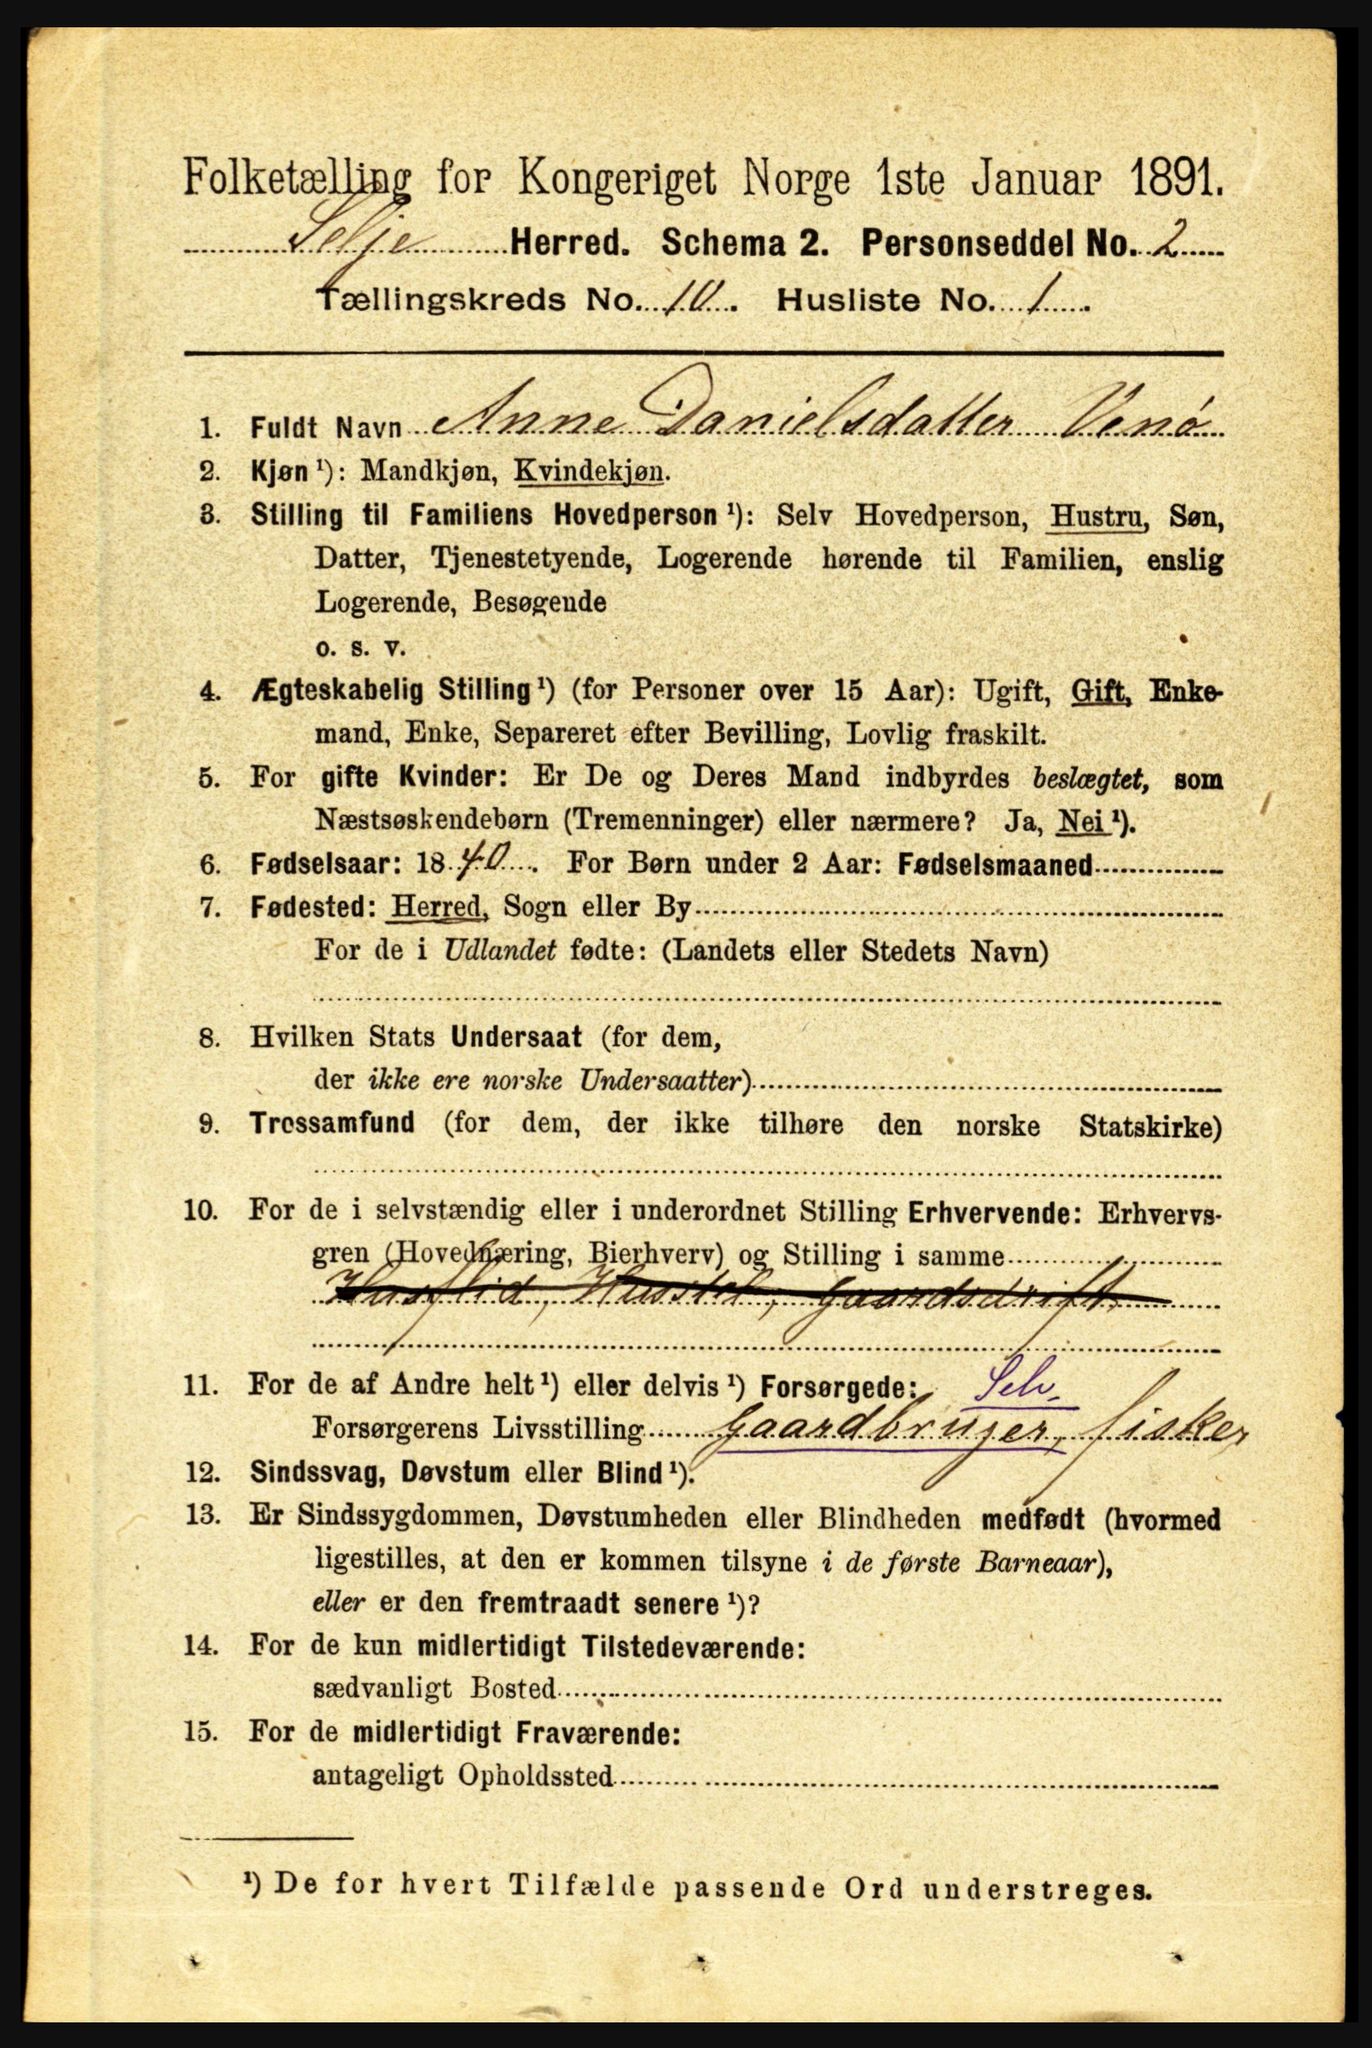 Folketælling for Kongeriget Norge 1ste Januar 1891.
Selje Herred. Schema 2. Personseddel No. 2
Tællingskreds No. 10. Husliste No. 1
1. Fuldt Navn Anne Danielsdatter Venø
2. Kjøn ¹): Mandkjøn, Kvindekjøn.
3. Stilling til Familiens Hovedperson ¹): Selv Hovedperson, Hustru, Søn,
Datter, Tjenestetyende, Logerende hørende til Familien, enslig
Logerende, Besøgende
o. s. v.
4. Ægteskabelig Stilling ¹) (for Personer over 15 Aar): Ugift, Gift, Enke-
mand, Enke, Separeret efter Bevilling, Lovlig fraskilt.
5. For gifte Kvinder: Er De og Deres Mand indbyrdes beslægtet, som
Næstsøskendebørn (Tremenninger) eller nærmere? Ja, Nei ¹).
6. Fødselsaar: 1840. For Børn under 2 Aar: Fødselsmaaned
7. Fødested: Herred, Sogn eller By
For de i Udlandet fødte: (Landets eller Stedets Navn)
8. Hvilken Stats Undersaat (for dem,
der ikke ere norske Undersaatter)
9. Trossamfund (for dem, der ikke tilhøre den norske Statskirke)
10. For de i selvstændig eller i underordnet Stilling Erhvervende: Erhvervs-
gren (Hovednæring, Bierhverv) og Stilling i samme
Husflid, Husstel, Gaardsdrift,
11. For de af Andre helt ¹) eller delvis ¹) Forsørgede: Selv.
Forsørgerens Livsstilling Gaardbruger, fisker
12. Sindssvag, Døvstum eller Blind ¹).
13. Er Sindssygdommen, Døvstumheden eller Blindheden medfødt (hvormed
ligestilles, at den er kommen tilsyne i de første Barneaar),
eller er den fremtraadt senere ¹)?
14. For de kun midlertidigt Tilstedeværende:
sædvanligt Bosted
15. For de midlertidigt Fraværende:
antageligt Opholdssted
¹) De for hvert Tilfælde passende Ord understreges.